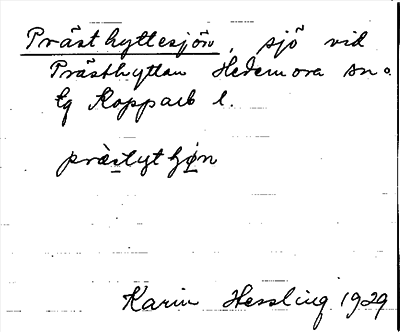 Prästhyttesjön, sjö vid
Prästhyttan Hedemora sn o.
tg Kopparb l.
præstytʃøn
Karin Hessling 1929